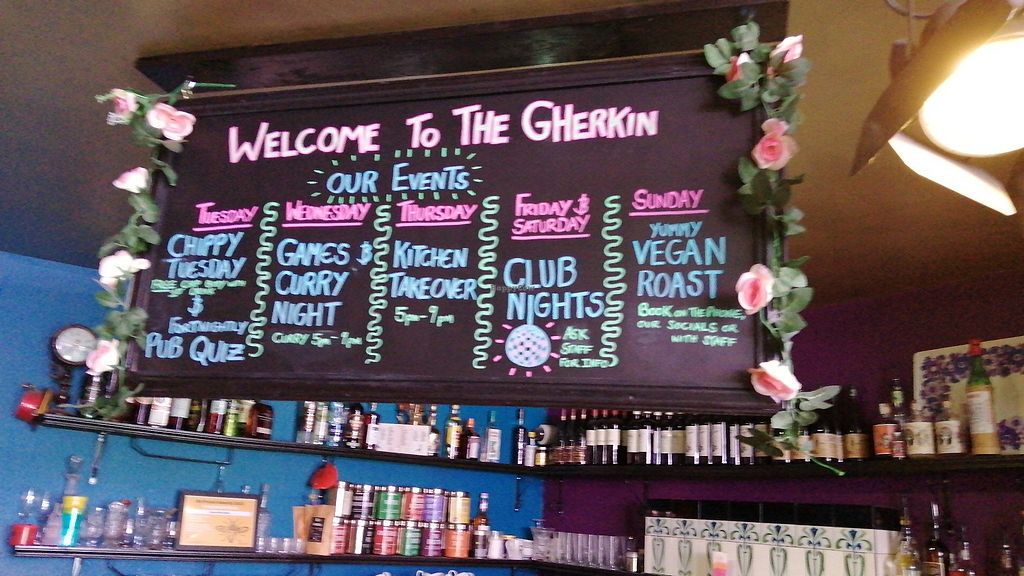 WELCOME TO THE GHERKIN
OUR EVENTS
TUESDAY
CHIPPY
TUESDAY
&
FORTNIGHTLY
PUB QUIZ
WEDNESDAY
GAMES &
CURRY
NIGHT
CURRY 5pm-9pm
THURSDAY
KITCHEN
TAKEOVER
5pm-9pm
FRIDAY &
SATURDAY
CLUB
NIGHTS
ASK
STAFF
FOR INFO
SUNDAY
YUMMY
VEGAN
ROAST
BOOK ON THE PHONE,
OUR SOCIALS OR
WITH STAFF